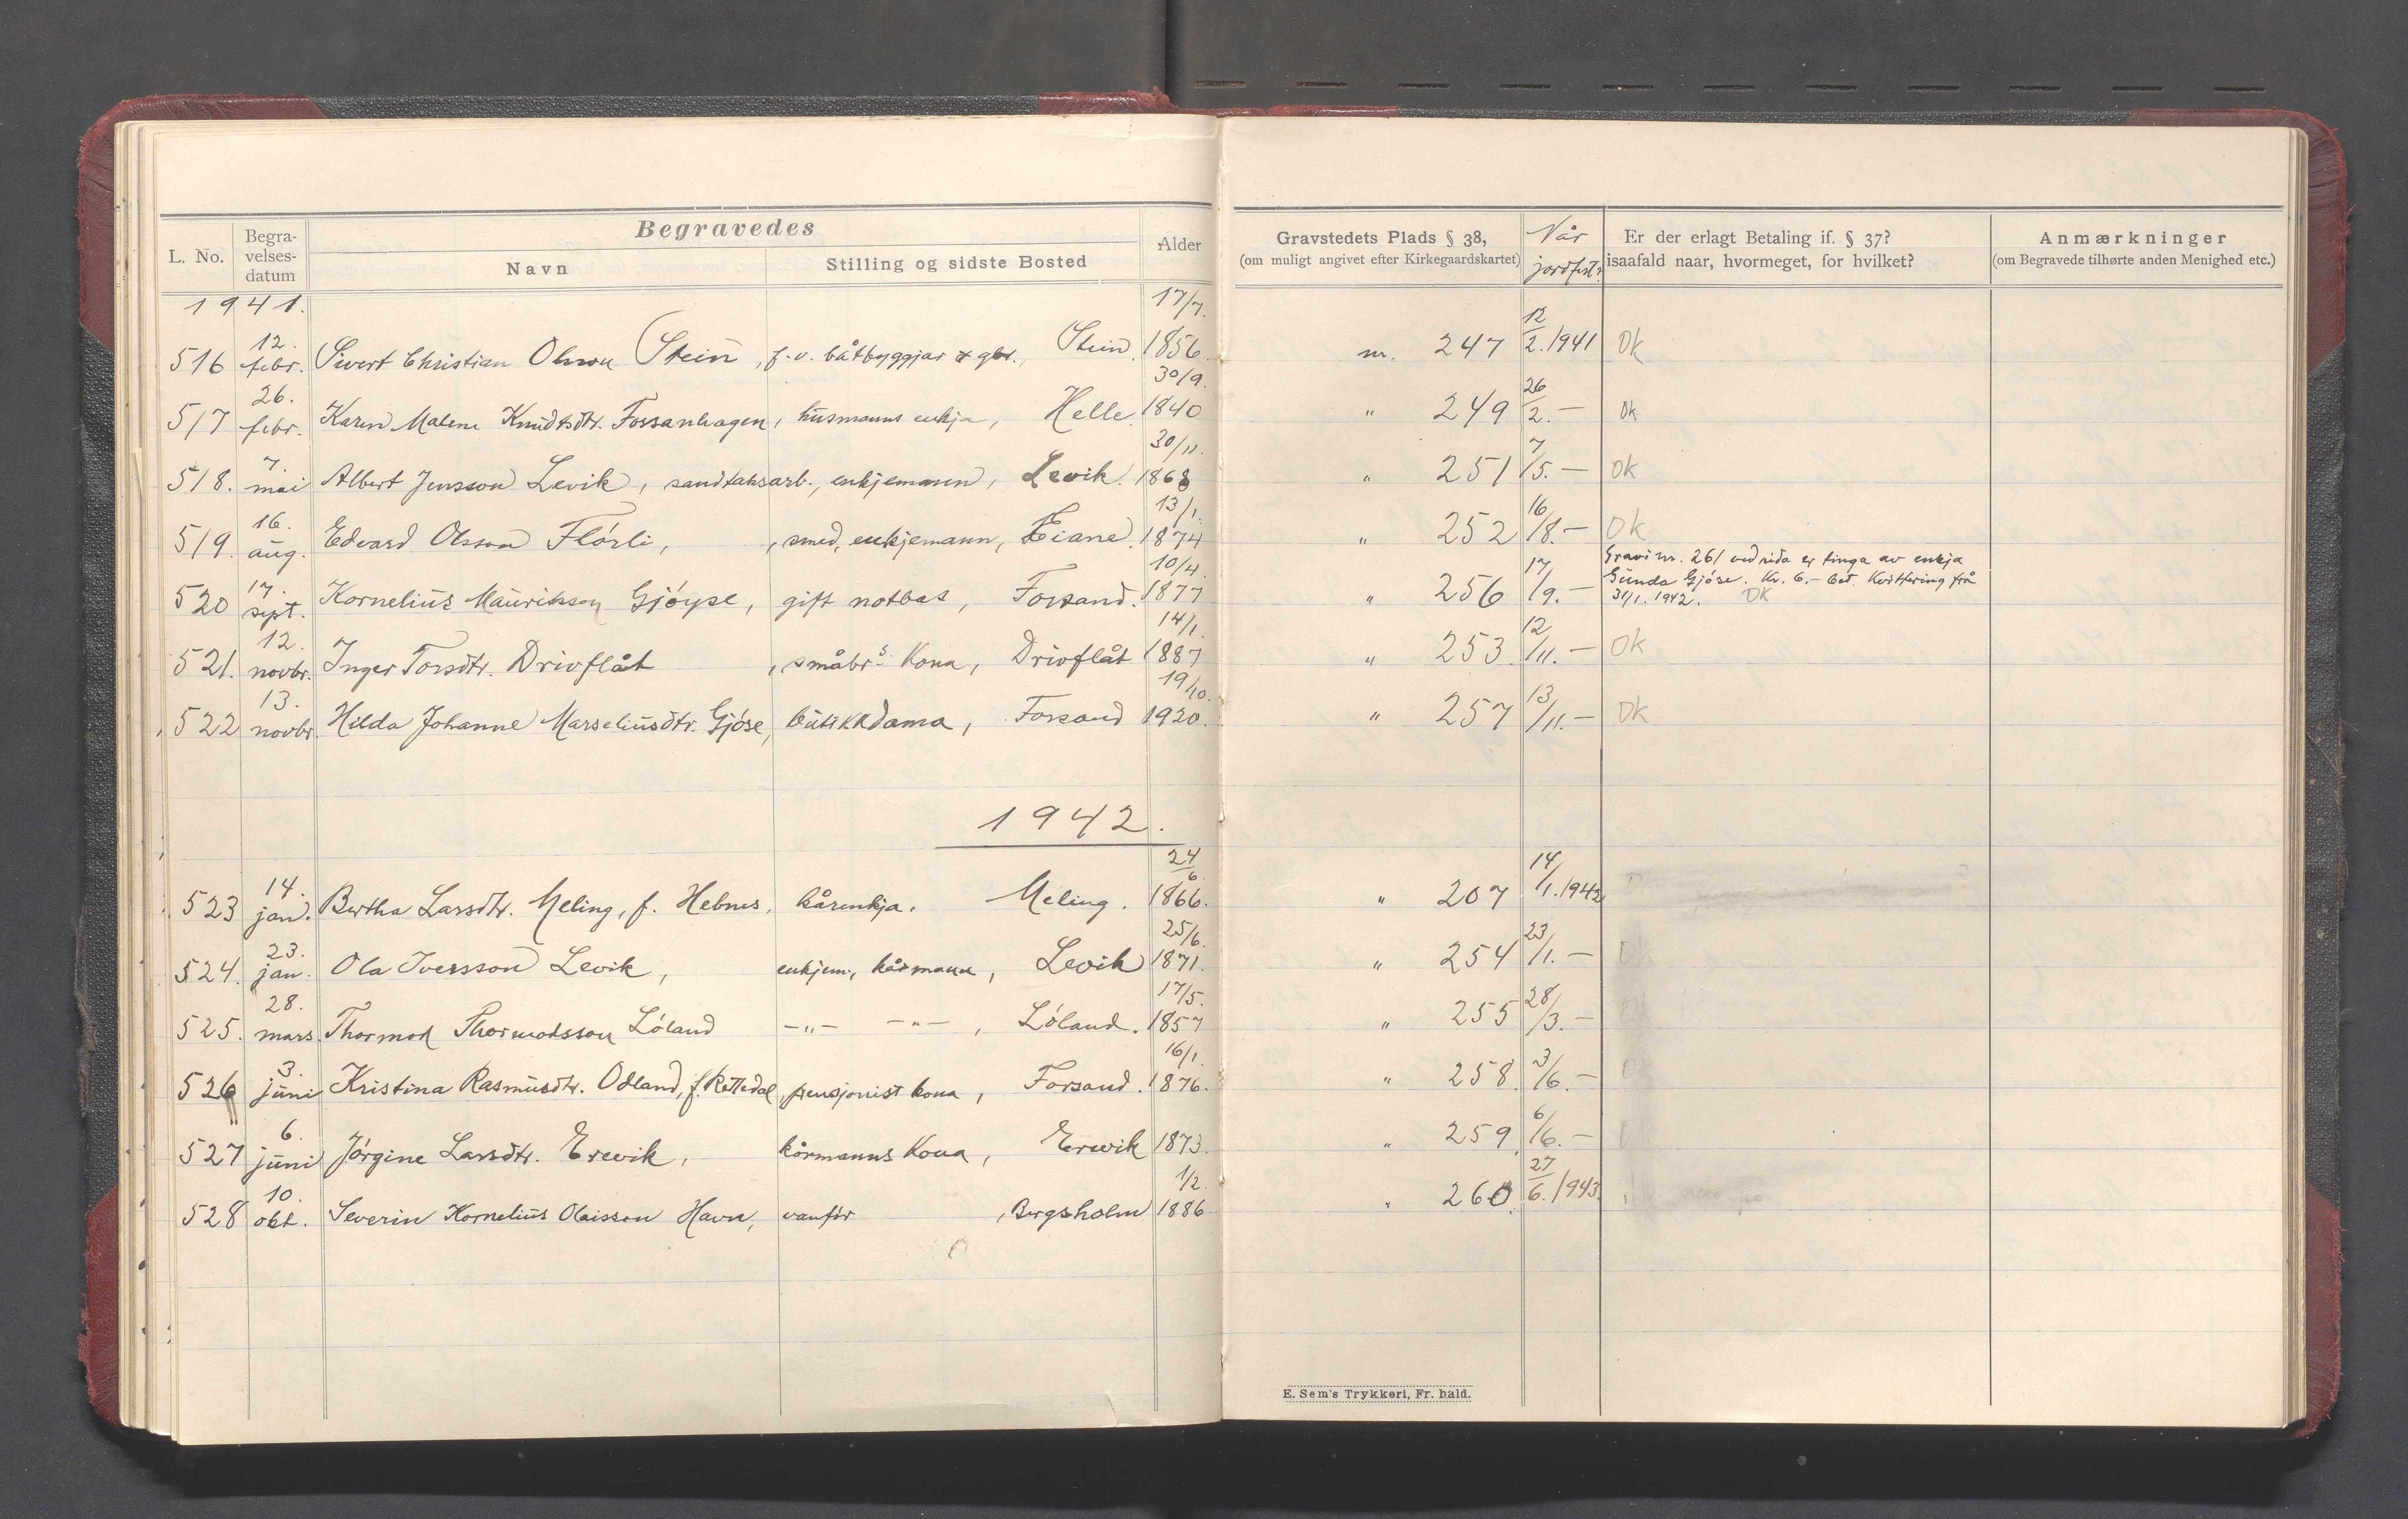 Begravedes
L. No. Begra-velses-datum Navn Stilling og sidste Bosted Alder Gravstedets Plads § 38, (om muligt angivet efter Kirkegaardskartet) Når jordfest. Er der erlagt Betaling if. § 37? isaafald naar, hvormeget, for hvilket? Anmærkninger (om Begravede tilhørte anden Menighed etc.)
1941.
516 12. febr. Sivert Christian Olsson Stein, f.v. båtbyggjar & gbr., Stein. 17/7. 1856. nr. 247 12/2. 1941 Ok
517 26. febr. Karen Malene Knudtsdtr. Fossanhagen, husmanns enkja, Helle. 30/9. 1840 " 249 26/2. — Ok
518. 7. mai Albert Jensson Levik, sandtaksarb., enkjemann, Levik. 30/11. 1868 " 251 7/5. — Ok
519. 16. aug. Edvard Olsson Flórli, , smed, enkjemann, Eiane. 13/1. 1874 " 252 16/8. — Ok
520 17. sept. Kornelius Mauritsson Gjóyse, gift notbas, Forsand. 10/4. 1877 " 256 17/9. — Grav nr. 261 ved sida er tinga av enkja
Gunda Gjóse. Kr. 6.— bet. Kvittering frå
31/1. 1942. OK
521. 12. novbr. Inger Torsdtr. Drivflåt , småbr.s Kona, Drivflåt 14/1. 1887 " 253. 12/11. — Ok
522 13. novbr. Hilda Johanne Marseliusdtr. Gjóse, butikkdama, Forsand 19/10. 1920. " 257 13/11. — Ok
1942.
523 14. jan. Bertha Larsdtr. Meling, f. Hebnes, kårenkja. Meling. 24/6. 1866. " 207 14/1. 1942
524. 23. jan. Ola Iversson Levik, enkjem., kårmann, Levik 25/6. 1871. " 254 23/1. — Ok
525. 28. mars. Thormod Thormodsson Lóland —"— —"—, Lóland. 17/5. 1857 " 255 28/3. —
526 3. juni Kristina Rasmusdtr. Odland, f. Rettedal, pensjonist kona, Forsand. 16/1. 1876. " 258. 3/6. —
527 6. juni Jórgine Larsdtr. Erevik, kårmanns Kona, Erevik 1873. " 259. 6/6. —
528 10. okt. Severin Kornelius Olaisson Havn, vanfór , Bergsholm 1/2. 1886 " 260. 27/6. 1943.
E. Sem's Trykkeri, Fr. hald.